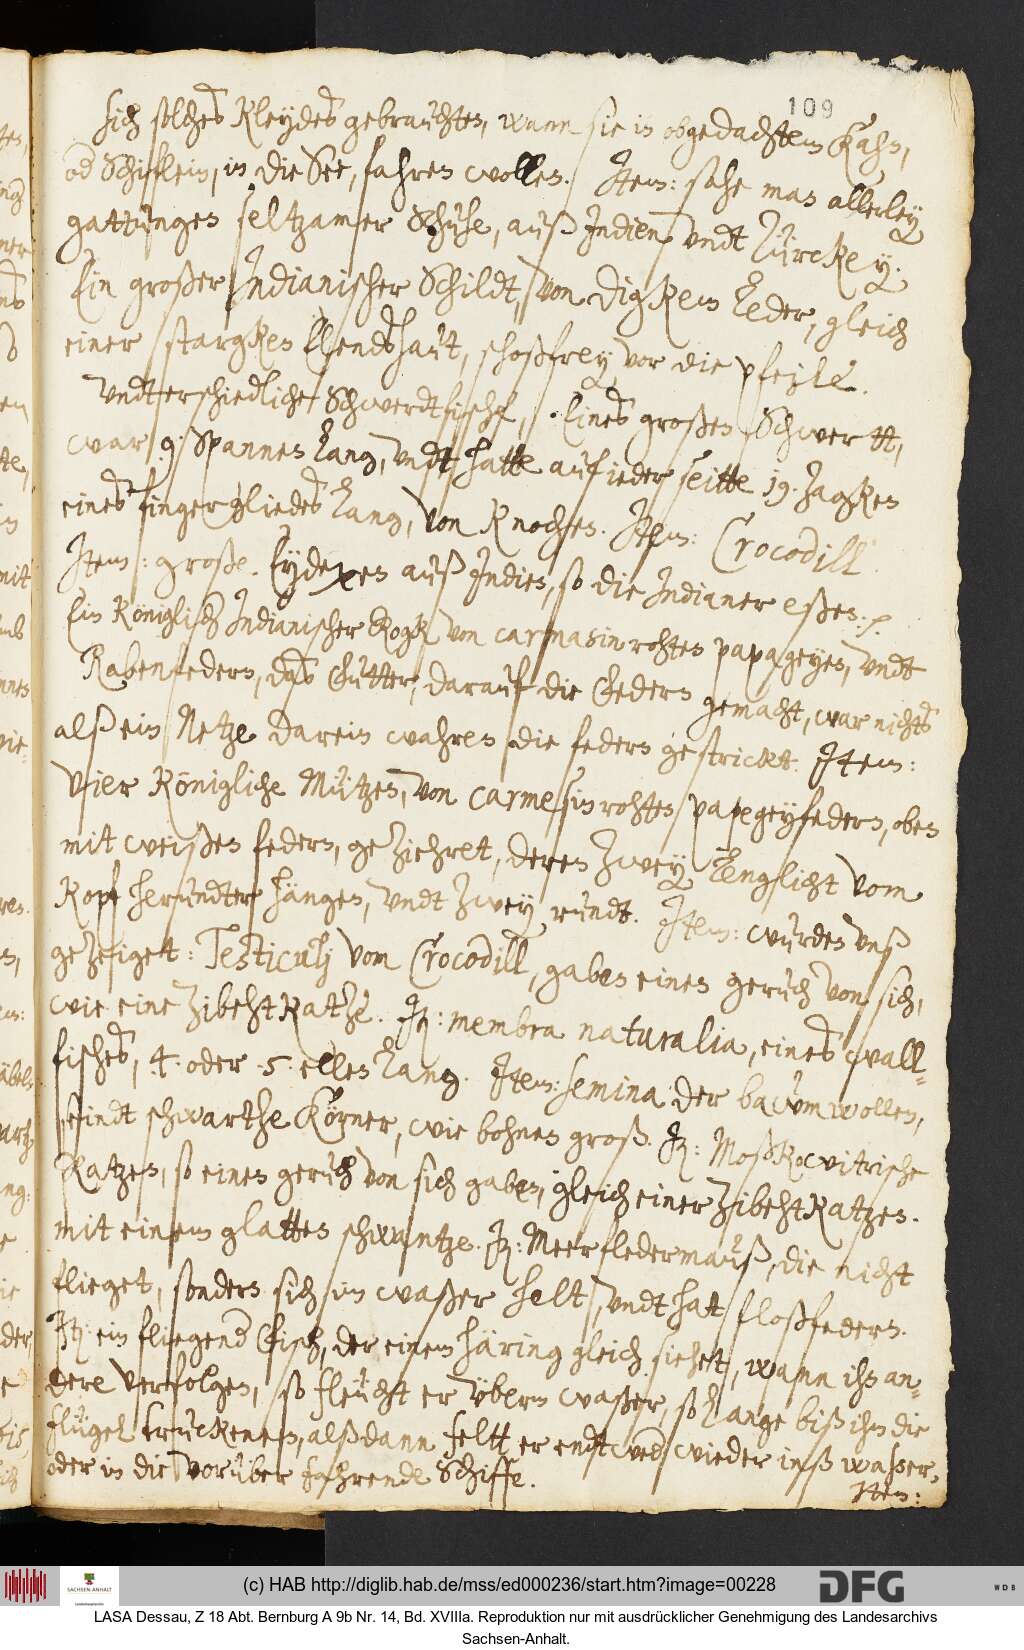 109
sich solches Kleydes gebrauchten, wann sie in obgedachtem Kahn,
od Schifflein, in die See, fahren wollen. Item: sahe man allerley
gattungen seltzamer Schuhe, auß Indien, vndt Türckey.
Ein großer Indianischer Schildt, von digkem Leder, gleich
einer stargken Elendshaut, schoßfrey, vor die pfeile.
Vndterschiedliche Schwerdtfische, Eines großen Schwertt,
war 9. Spannen lang, vndt hatte auf ieder seitte 19. Zagken
eines fingergliedes lang, von Knochen. Item: Crocodill.
Item: große Eydexen auß Indien, so die Indianer eßen.
Ein Königlich Indianischer Rogk von carmasinrohten papageyen, vndt
Rabenfedern, das Futter, darauf die Federn gemacht, war nichts
alß ein Netze darein wahren die federn gestrickt. Item:
Vier Königliche Mützen, von carmesinrohten papegeyfedern, oben
mit weißen federn, geziehret, deren zwey lenglicht vom
Kopf herundter hängen, vndt zwey rundt. Item: wurden vnß
gezeiget: Testiculj vom Crocodill, gaben einen geruch von sich,
wie eine Zibeht Katze. It: membra naturalia, eines wall-
fisches, 4. oder .5. ellen lang. Item: semina der bawmwollen,
seindt schwarthe Körner, wie bohnen groß. It: Moßkowitrische
Katzen, so einen geruch von sich gaben, gleich einer ZibehtKatzen.
mit einem glatten schwantze. It: Meerfledermauß, die nicht
flieget, sondern sich im waßer helt, vndt hat floßfedern.
It: ein fliegend Fisch, der einem häring gleich siehet, wann ihn an-
dere verfolgen, so fleucht er vberm waßer, so lange biß ihm die
flügel truckenen, alßdann felltt er entwed wieder inß waßer,
oder in die vorüber fahrende Schiffe.
Item:
(c) HAB http://diglib.hab.de/mss/ed000236/start.htm?image=00228
SACHSEN-ANHALT
DFG
WDB
LASA Dessau, Z 18 Abt. Bernburg A 9b Nr. 14, Bd. XVIIIa. Reproduktion nur mit ausdrücklicher Genehmigung des Landesarchivs
Sachsen-Anhalt.